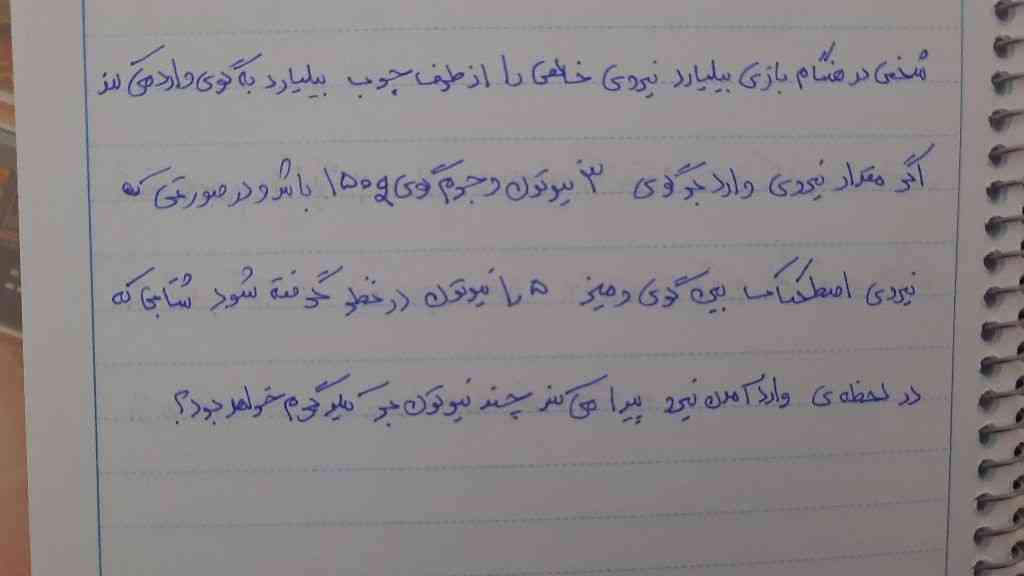 شخصی در هنگام بازی بیلیارد نیروی خالصی را از طرف چوب بیلیارد به گوی وارد می کند
اگر مقدار نیروی وارد بر گوی ۳ نیوتون و جرم گوی ۱۵۰g باشد و در صورتی که
نیروی اصطکاک بین گوی و میز ۱٫۵ نیوتون در نظر گرفته شود شتابی که
در لحظه ی وارد آمدن نیرو پیدا می کند چند نیوتون بر کیلوگرم خواهد بود؟